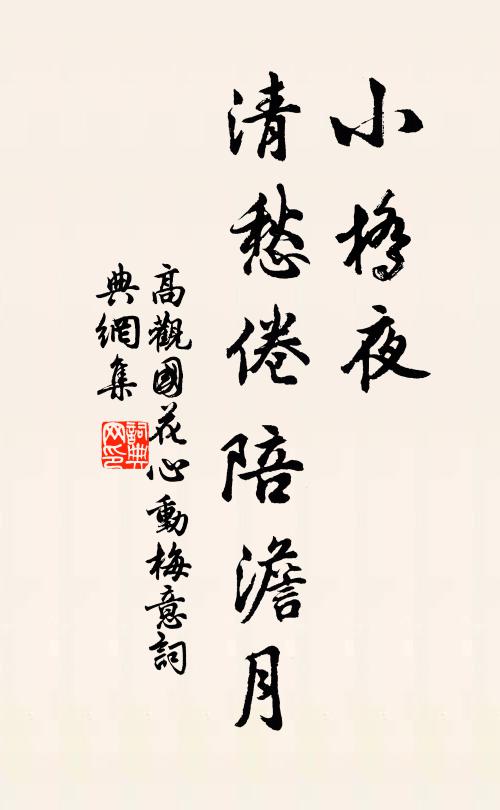 小橋夜
清愁倦陪澹月
高觀國花心動梅意詞
典網集
詞典网印